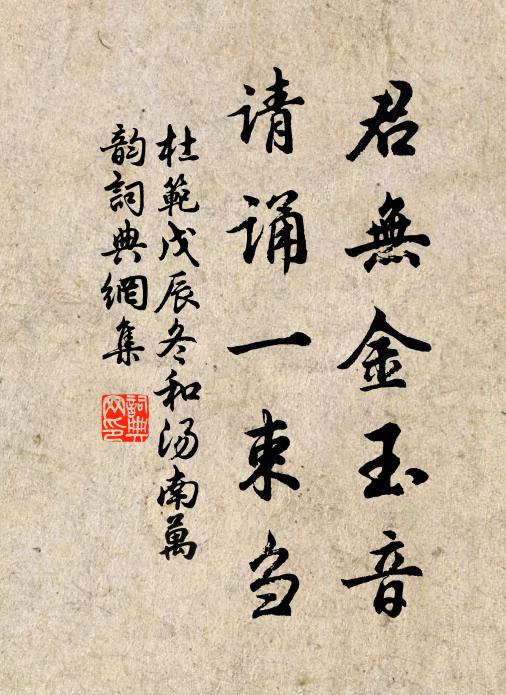 君無金玉音
请诵一束刍
杜範戊辰冬和汤南萬
韵詞典網集
詞典網印